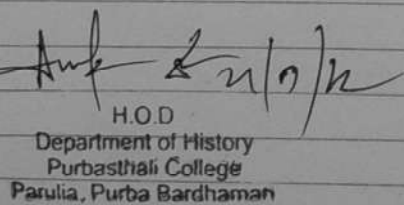 H.O.D
Department of History
Purbasthali College
Parulia, Purba Bardhaman